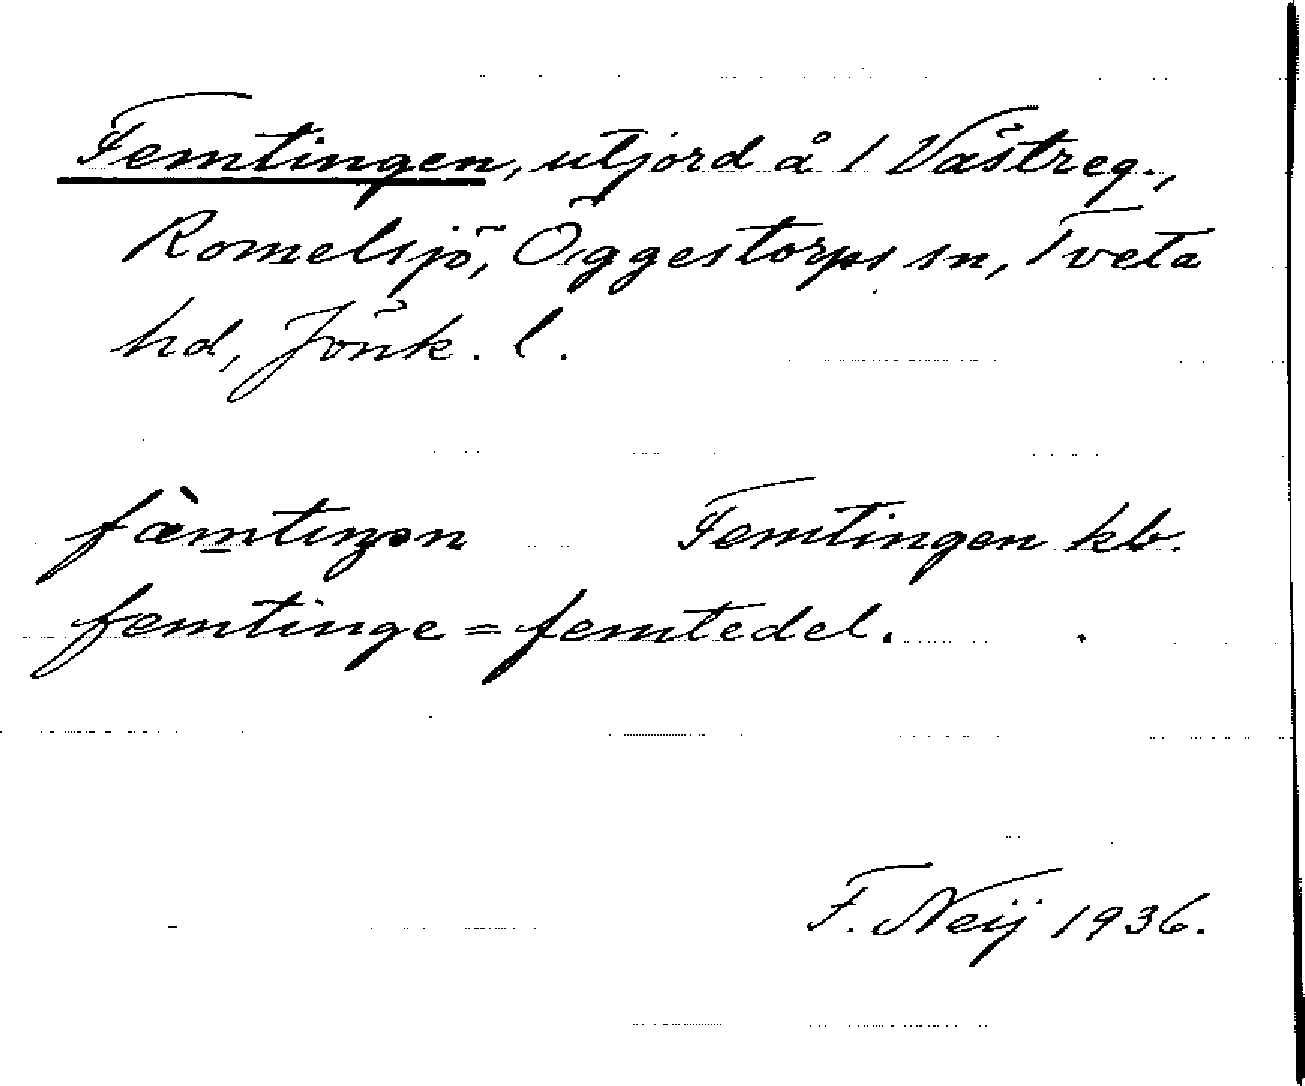 Femtingen, utjord å 1 Västreg.,
Romelsjö, Öggestorps sn, Tveta
hd, Jönk. l.
fæ̀mtiŋən Femtingen kb.
femtinge = femtedel.
F. Neij 1936.